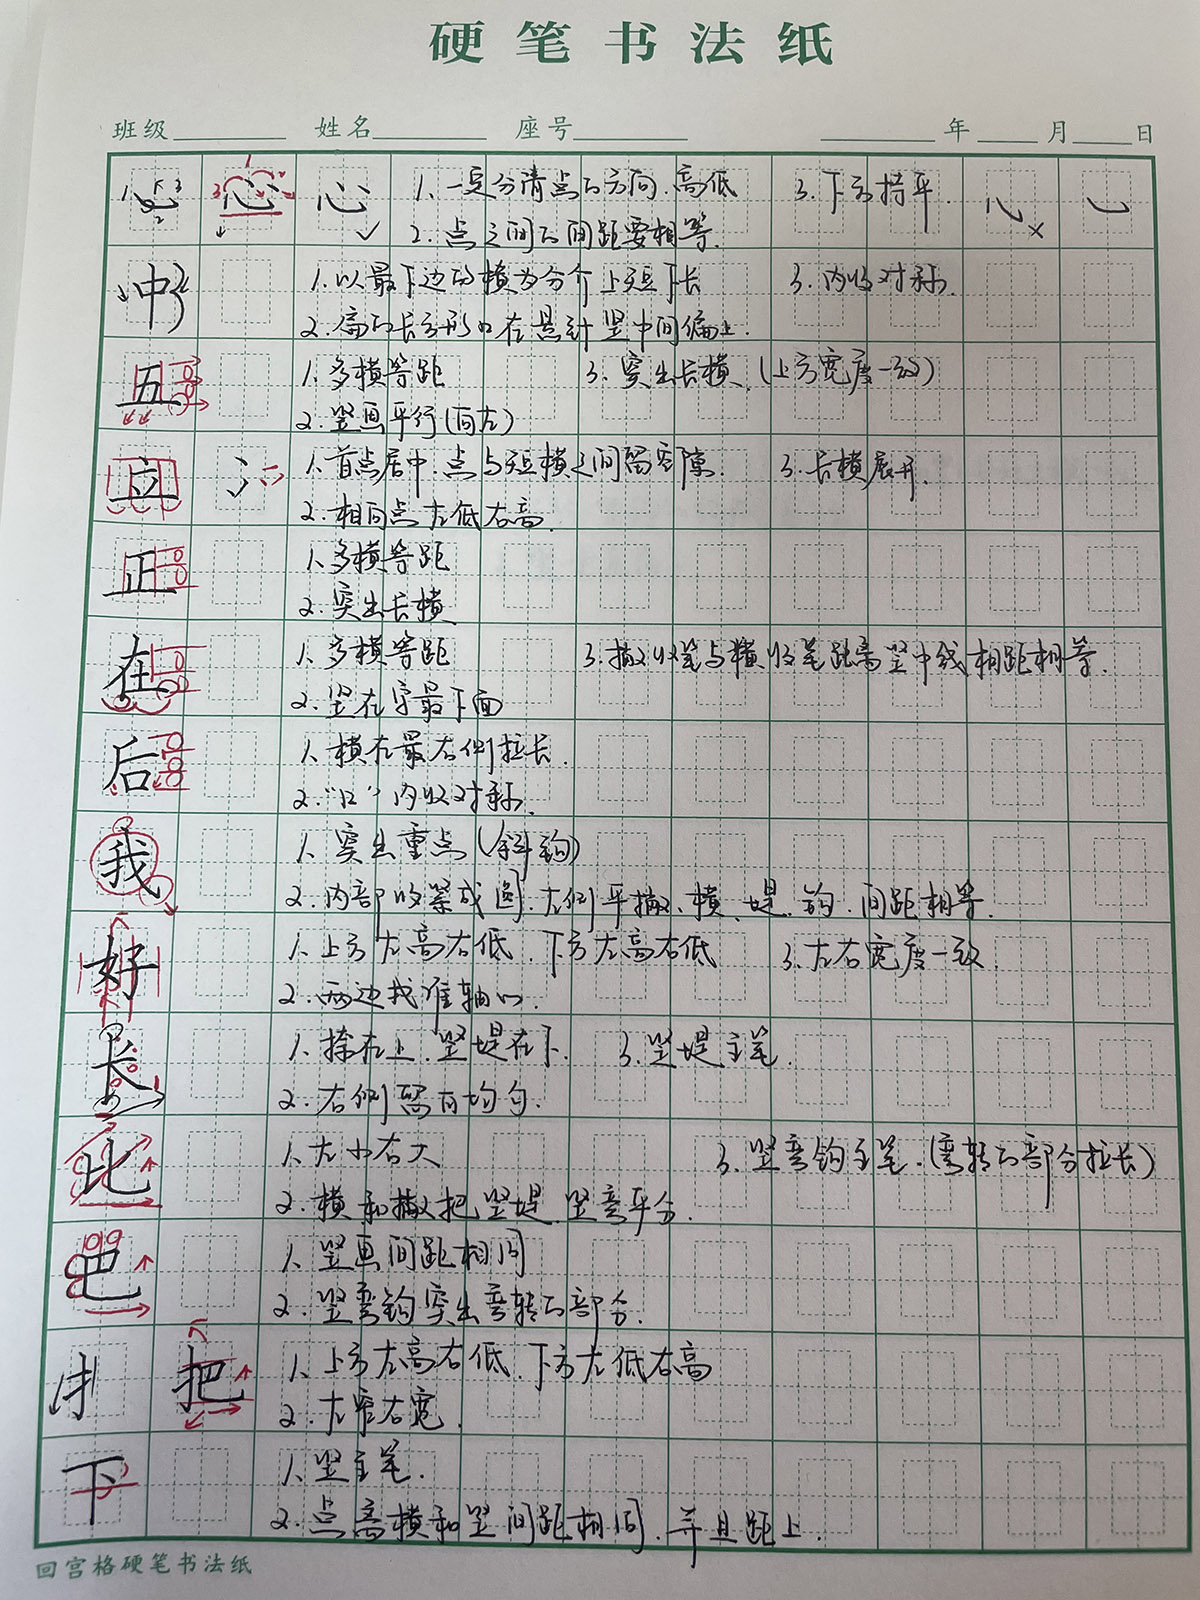 硬笔书法纸
班级 姓名 座号 年 月 日
心 心 心 1. 一定分清点的方向、高低 3. 下方持平. 心
2. 点之间的间距要相等.
中 1. 以最下边的横为分介 上短下长 3. 内收对称.
2. 扁的长方形口在悬针竖中间偏上.
五 1. 多横等距 3. 突出长横 (上方宽度一致)
2. 竖画平行(向左)
立 1. 首点居中. 点与短横之间留空隙. 3. 长横展开.
2. 相向点左低右高.
正 1. 多横等距
2. 突出长横
在 1. 多横等距 3. 撇收笔与横收笔距离竖中线相距相等.
2. 竖在字最下面
后 1. 横在最右侧拉长.
2. “口”内收对称.
我 1. 突出重点(斜钩)
2. 内部收紧成圆. 左侧平撇、横、堤、钩. 间距相等.
好 1. 上方左高右低. 下方左高右低 3. 左右宽度一致
2. 两边找准轴心.
长 1. 捺在上. 竖堤在下. 3. 竖堤主笔.
2. 右侧留白均匀.
比 1. 左小右大 3. 竖弯钩主笔. (弯转的部分拉长)
2. 横和撇把竖堤. 竖弯平分.
吧 1. 竖画间距相同
2. 竖弯钩突出弯转的部分.
扌 把 1. 上方左高右低. 下方左低右高
2. 左窄右宽.
下 1. 竖主笔.
2. 点离横和竖间距相同. 并且距上.
回宫格硬笔书法纸